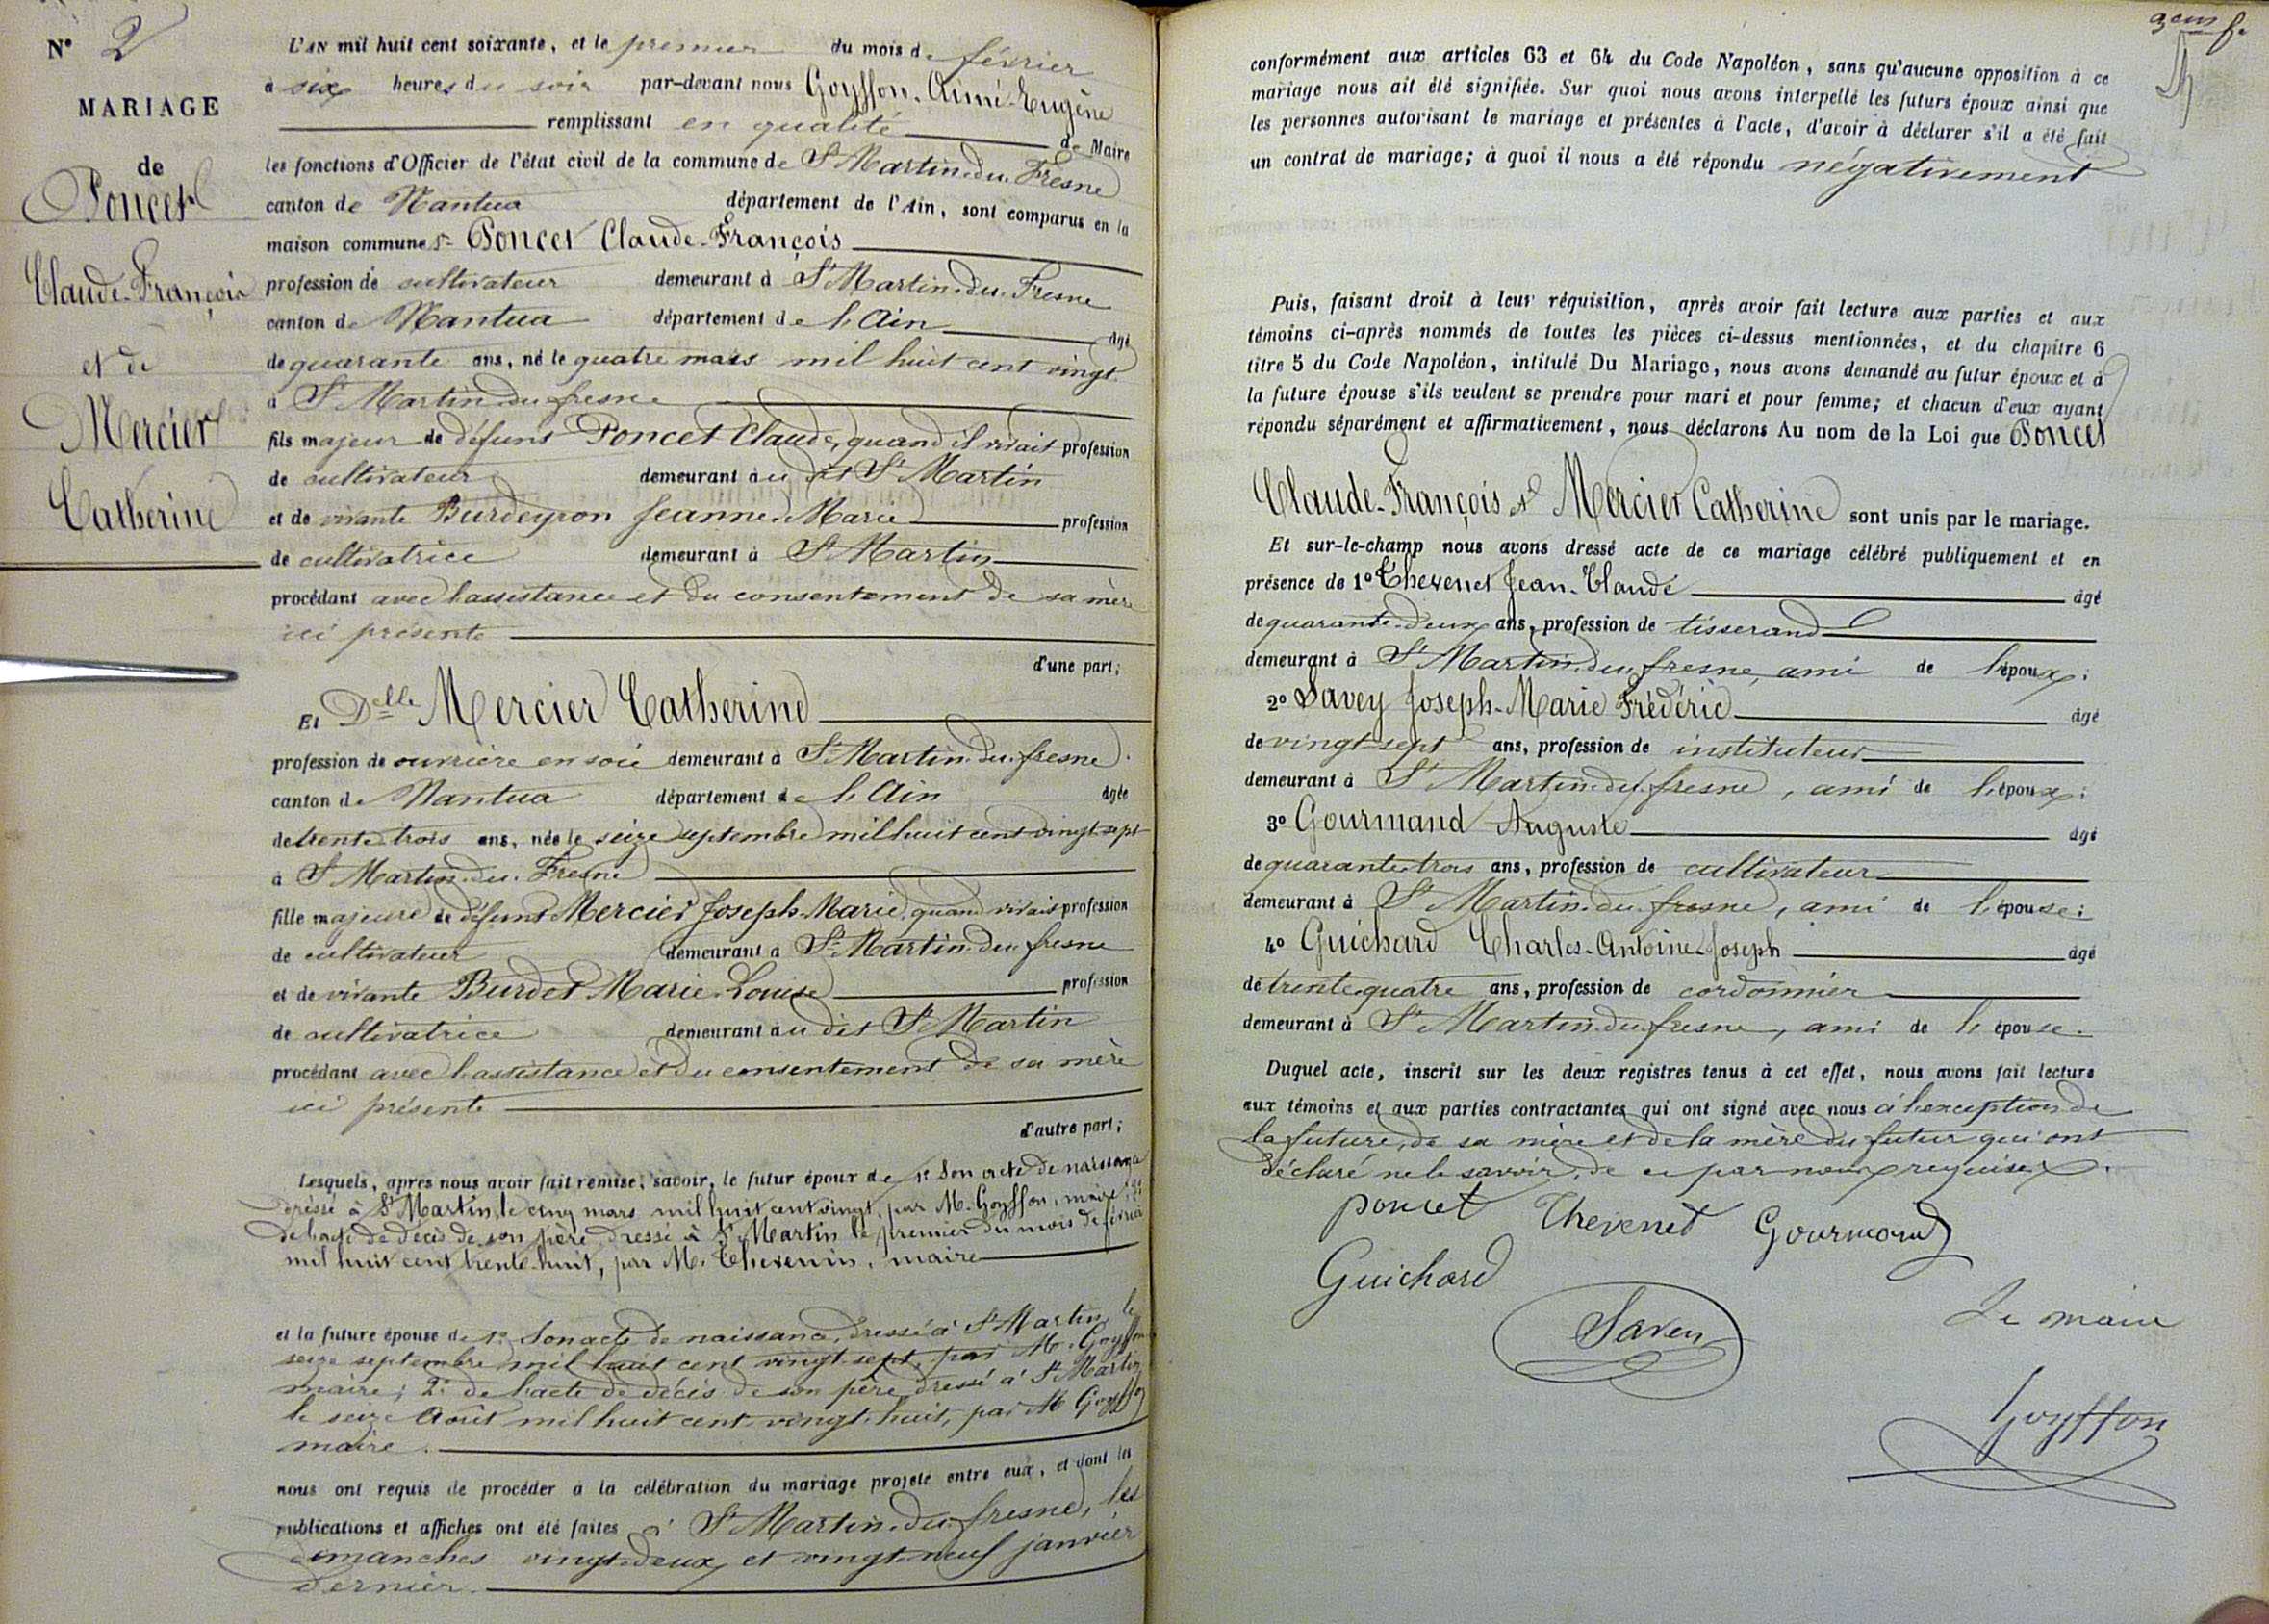 N° 2
MARIAGE
de
Poncet
Claude-François
et de
Mercier
Catherine
L'AN mil huit cent soixante, et le premier du mois de février
à six heures du soir par-devant nous Goyffon Aimé-Eugène
remplissant en qualité de Maire
les fonctions d'Officier de l'état civil de la commune de St Martin-du-Fresne
canton de Nantua département de l'Ain, sont comparus en la
maison commune Sr Poncet Claude-François
profession de cultivateur demeurant à St Martin-du-Fresne
canton de Nantua département de l'Ain âgé
de quarante ans, né le quatre mars mil huit cent vingt
à St Martin du fresne
fils majeur de défunt Poncet Claude, quand il vivait profession
de cultivateur demeurant au dit St Martin
et de vivante Burdeyron Jeanne-Marie profession
de cultivatrice demeurant à St Martin
procédant avec l'assistance et du consentement de sa mère
ici présente
d'une part;
Et Delle Mercier Catherine
profession de ouvrière en soie demeurant à St Martin-du-fresne
canton de Nantua département de l'Ain âgée
de trente-trois ans, née le seize septembre mil huit cent vingt-sept
à St Martin-du-Fresne
fille majeure de défunt Mercier Joseph-Marie, quand vivait profession
de cultivateur demeurant à St Martin-du-fresne
et de vivante Burdet Marie-Louise profession
de cultivatrice demeurant au dit St Martin
procédant avec l'assistance et du consentement de sa mère
ici présente
d'autre part;
Lesquels, après nous avoir fait remise, savoir, le futur époux de 1° Son acte de naissance
dressé à St Martin, le cinq mars mil huit cent vingt, par M. Goyffon, maire; 2°
de l'acte de décès de son père dressé à St Martin le premier du mois de février
mil huit cent trente-huit, par M. Thevenin, maire
et la future épouse de 1° Son acte de naissance, dressé à St Martin, le
seize septembre mil huit cent vingt-sept, par M. Goyffon
maire; 2° de l'acte de décès de son père dressé à St Martin
le seize Août mil huit cent vingt-huit, par M Goyffon
maire.
nous ont requis de procéder à la célébration du mariage projeté entre eux, et dont les
publications et affiches ont été faites à St Martin-du-fresne, les
dimanches vingt-deux et vingt-neuf janvier
dernier.
conformément aux articles 63 et 64 du Code Napoléon, sans qu'aucune opposition à ce
mariage nous ait été signifiée. Sur quoi nous avons interpellé les futurs époux ainsi que
les personnes autorisant le mariage et présentes à l'acte, d'avoir à déclarer s'il a été fait
un contrat de mariage; à quoi il nous a été répondu négativement
Puis, faisant droit à leur réquisition, après avoir fait lecture aux parties et aux
témoins ci-après nommés de toutes les pièces ci-dessus mentionnées, et du chapitre 6
titre 5 du Code Napoléon, intitulé Du Mariage, nous avons demandé au futur époux et à
la future épouse s'ils veulent se prendre pour mari et pour femme; et chacun d'eux ayant
répondu séparément et affirmativement, nous déclarons Au nom de la Loi que Poncet
Claude-François et Mercier Catherine sont unis par le mariage.
Et sur-le-champ nous avons dressé acte de ce mariage célébré publiquement et en
présence de 1° Thevenet Jean-Claude âgé
de quarante-deux ans, profession de tisserand
demeurant à St Martin-du-fresne, ami de l'époux;
2° Savey Joseph-Marie Frédéric âgé
de vingt-sept ans, profession de instituteur
demeurant à St Martin-du-fresne, ami de l'époux;
3° Gourmand Auguste âgé
de quarante-trois ans, profession de cultivateur
demeurant à St Martin-du-fresne, ami de l'épouse;
4° Guichard Charles-Antoine-Joseph âgé
de trente-quatre ans, profession de cordonnier
demeurant à St Martin-du-fresne, ami de l'épouse.
Duquel acte, inscrit sur les deux registres tenus à cet effet, nous avons fait lecture
aux témoins et aux parties contractantes qui ont signé avec nous à l'exception de
la future, de sa mère et de la mère du futur qui ont
déclaré ne le savoir, de ce par nous requises.
poncet Thevenet Gourmand
Guichard
Savey
Le maire
Goyffon